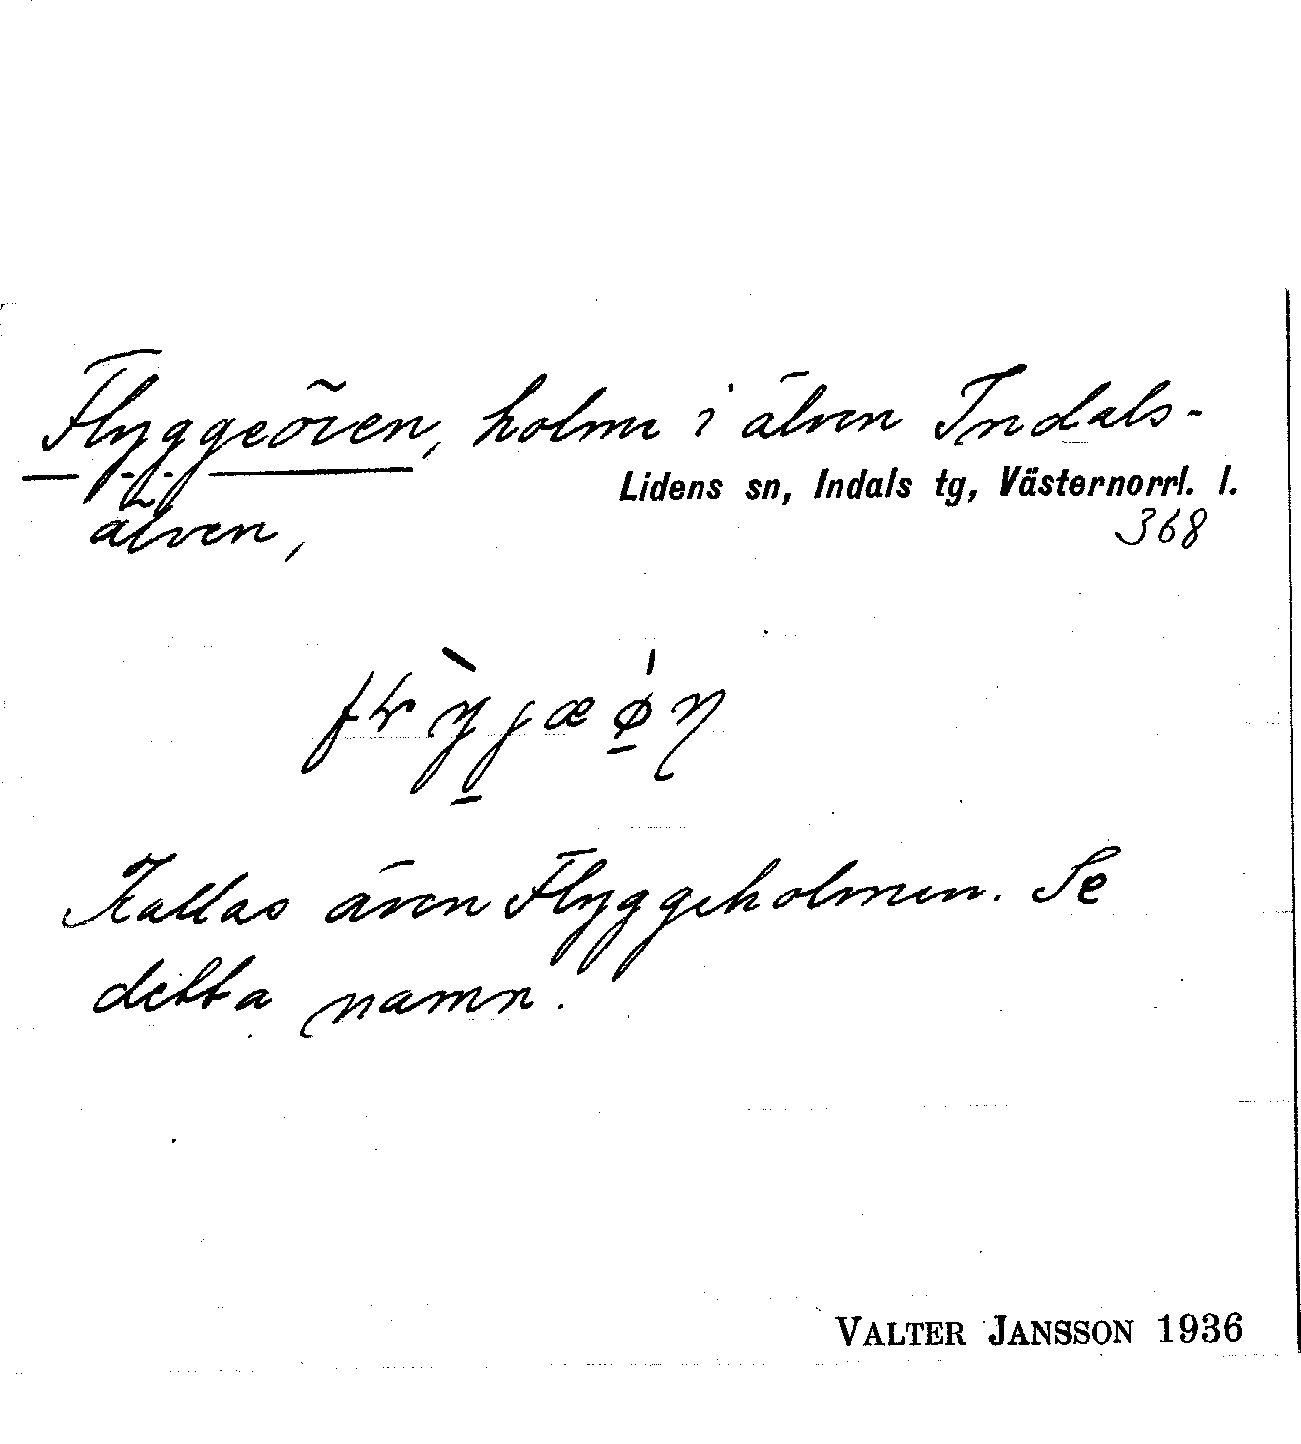 Flyggeören, holme i älven Indals-
Lidens sn, Indals tg, Västernorrl. l.
älven,
368
Kallas även Flyggeholmen. Se
detta namn.
VALTER JANSSON 1936